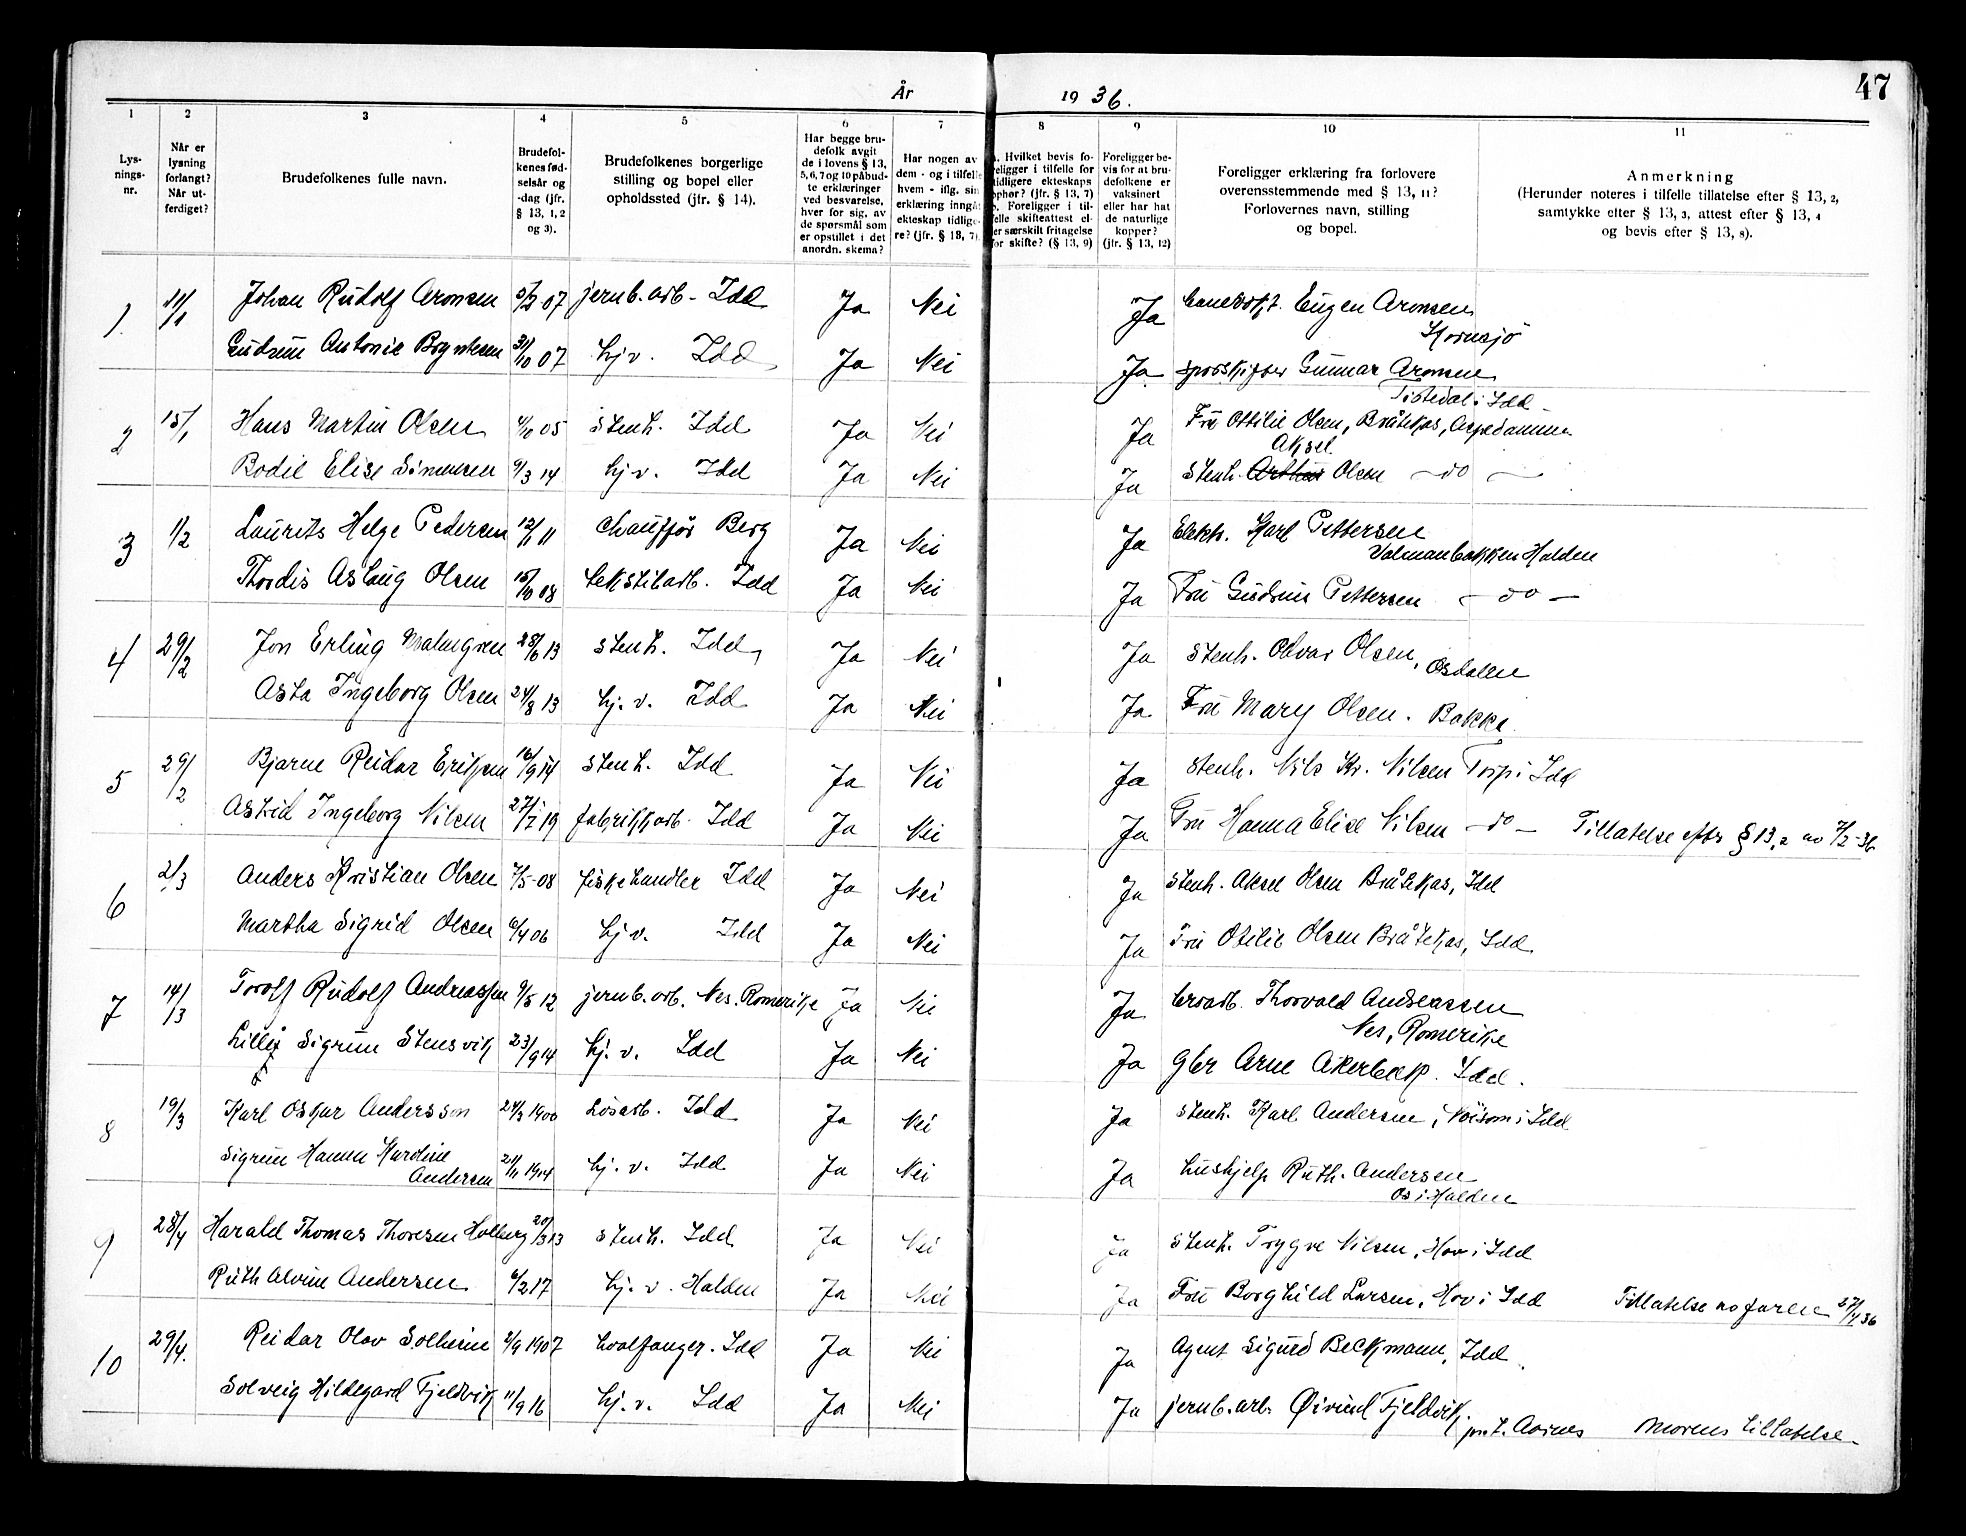 47
År 1936.
1 2 3 4 5 6 7 8 9 10 11
Lys-
nings-
nr.
Når er
lysning
forlangt?
Når ut-
ferdiget?
Brudefolkenes fulle navn.
Brudefol-
kenes fød-
selsår og
-dag (jfr.
§ 13, 1, 2
og 3).
Brudefolkenes borgerlige
stilling og bopel eller
opholdssted (jfr. § 14).
Har begge bru-
defolk avgit
de i lovens § 13,
5, 6, 7 og 10 påbud-
te erklæringer
ved besvarelse,
hver for sig, av
de spørsmål som
er opstillet i det
anordn. skema?
Har nogen av
dem - og i tilfelle
hvem - iflg. sin
erklæring inngå
ekteskap tidlige-
re? (jfr. § 13, 7)
. Hvilket bevis fo-
religger i tilfelle for
tidligere ekteskaps
ophør? (jfr. § 13, 7)
b. Foreligger i til-
felle skifteattest el-
er særskilt fritagelse
for skifte? (§ 13, 9)
Foreligger be-
vis for at bru-
defolkene er
vaksinert
eller har hat
de naturlige
kopper?
(jfr. § 13, 12)
Foreligger erklæring fra forlovere
overensstemmende med § 13, 11?
Forlovernes navn, stilling
og bopel.
Anmerkning
(Herunder noteres i tilfelle tillatelse efter § 13, 2,
samtykke efter § 13, 3, attest efter § 13, 4
og bevis efter § 13, 8).
1 11/1 Johan Rudolf Aronsen 5/2 07 jernb.arb. Idd Ja Nei Ja Eugen Aronsen
Kornsjø
Gudrun Antonie 31/10 07 hj v. Idd Ja Nei Ja Gunnar Aronsen
Tistedal i Idd
2 15/1 Hans Martin Olsen 4/10 05 stenh. Idd Ja Nei Ja Fru Ottilie Olsen, Bråtekas, Aspedammen
Aksel
Bodil Elise Simensen 9/3 14 hj v. Idd Ja Nei Ja stenh. Arthur Olsen — do —
3 1/2 Laurits Helge Pedersen 12/11 11 chauffør Berg Ja Nei Ja Karl Pettersen
Halden
Thordis Aslaug Olsen 15/10 08 tekstilarb. Idd Ja Nei Ja Fru Gudrun Pettersen — do —
4 29/2 Jon Erling Malmgren 28/6 13 stenh. Idd Ja Nei Ja stenh. Olvar Olsen, Osdalen
Asta Ingeborg Olsen 24/8 13 hj. v. Idd Ja Nei Ja Fru Mary Olsen. Bakke
5 29/2 Bjarne Reidar Eriksen 16/9 14 stenh. Idd Ja Nei Ja stenh. Nils Kr. Nilsen Torp i Idd
Astrid Ingeborg Nilsen 27/7 19 fabrikkarb. Idd Ja Nei Ja Fru Hanna Elise Nilsen — do — Tillatelse efter § 13, 2 av 7/2-36
6 2/3 Anders Kristian Olsen 7/5-08 fiskehandler Idd Ja Nei Ja stenh. Aksel Olsen Bråtekas, Idd
Martha Sigrid Olsen 6/4 06 hj v. Idd Ja Nei Ja Fru Otilie Olsen Bråtekas, Idd
7 14/3 Torolf Rudolf Andreassen 9/8 12 jernb.arb. Nes. Romerike Ja Nei Ja Thorvald Andreassen
Nes, Romerike
Lilly Sigrun Stensvik 23/9 14 hj. v. Idd Ja Nei Ja gbr Arne Akerbæk. Idd.
8 19/3 Karl Oskar Andersson 24/3 1900 Løsarb. Idd Ja Nei Ja stenh. Karl Andersen, i Idd
Sigrun Hanna Hardine
Andersen 21/11 1914 hj. v. Idd Ja Nei Ja hushjelp Ruth Andersen
Os i Halden
9 28/4 Harald Thomas Thoresen Holberg 20/3 13 stenh. Idd Ja Nei Ja stenh. Trygve Nilsen, Hov i Idd
Ruth Alvine Andersen 6/2 17 hj. v. Halden Ja Nei Ja Fru Borghild Larsen, Hov i Idd Tillatelse av faren 27/4 36
10 29/4. Reidar Olav Solheim 2/9 1907 hvalfanger. Idd Ja Nei Ja Agent Sigurd Beckmann, Idd.
Solveig Hildegard Fjeldvik 11/9 16 hj. v. Idd Ja Nei Ja jernb.arb. Øivind Fjeldvik.
Morens tillatelse